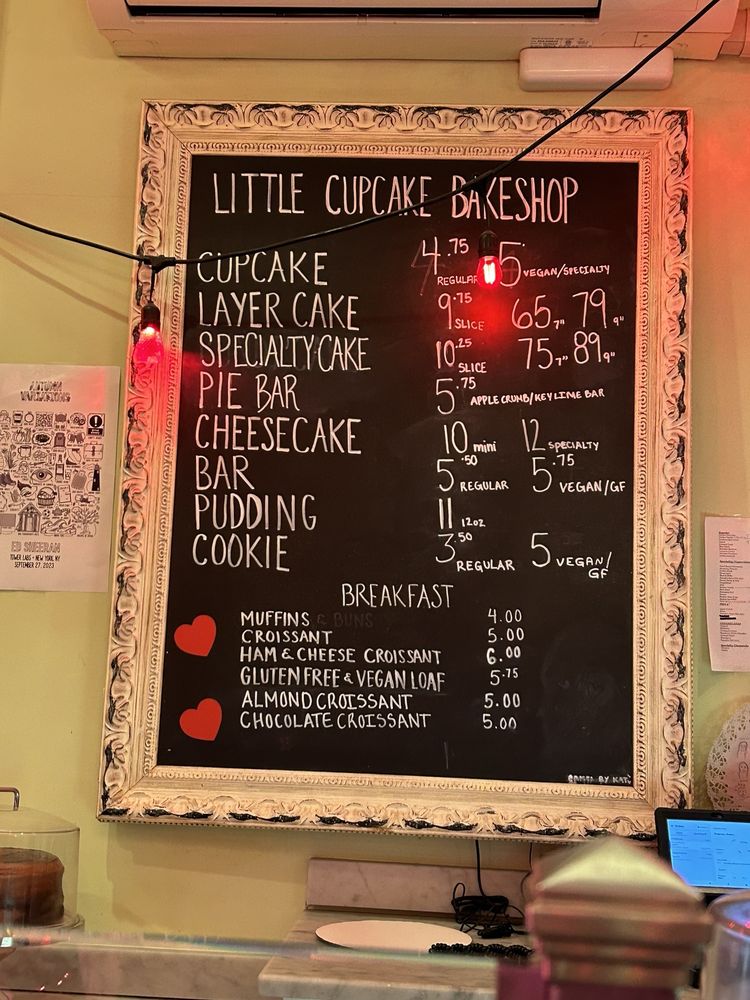 LITTLE CUPCAKE BAKESHOP
CUPCAKE 4.75 REGULAR 5 VEGAN/SPECIALTY
LAYER CAKE 9.75 SLICE 65 7" 79 9"
SPECIALTY CAKE 10.25 SLICE 75 7" 89 9"
PIE BAR 5.75 APPLE CRUMB/KEY LIME BAR
CHEESECAKE 10 mini 12 SPECIALTY
BAR 5.50 REGULAR 5.75 VEGAN/GF
PUDDING 11 12oz
COOKIE 3.50 REGULAR 5 VEGAN/GF
BREAKFAST
MUFFINS & BUNS 4.00
CROISSANT 5.00
HAM & CHEESE CROISSANT 6.00
GLUTEN FREE & VEGAN LOAF 5.75
ALMOND CROISSANT 5.00
CHOCOLATE CROISSANT 5.00
AUTUMN
VARIATIONS
ED SHEERAN
TOWER LABS • NEW YORK, NY
SEPTEMBER 27, 2023